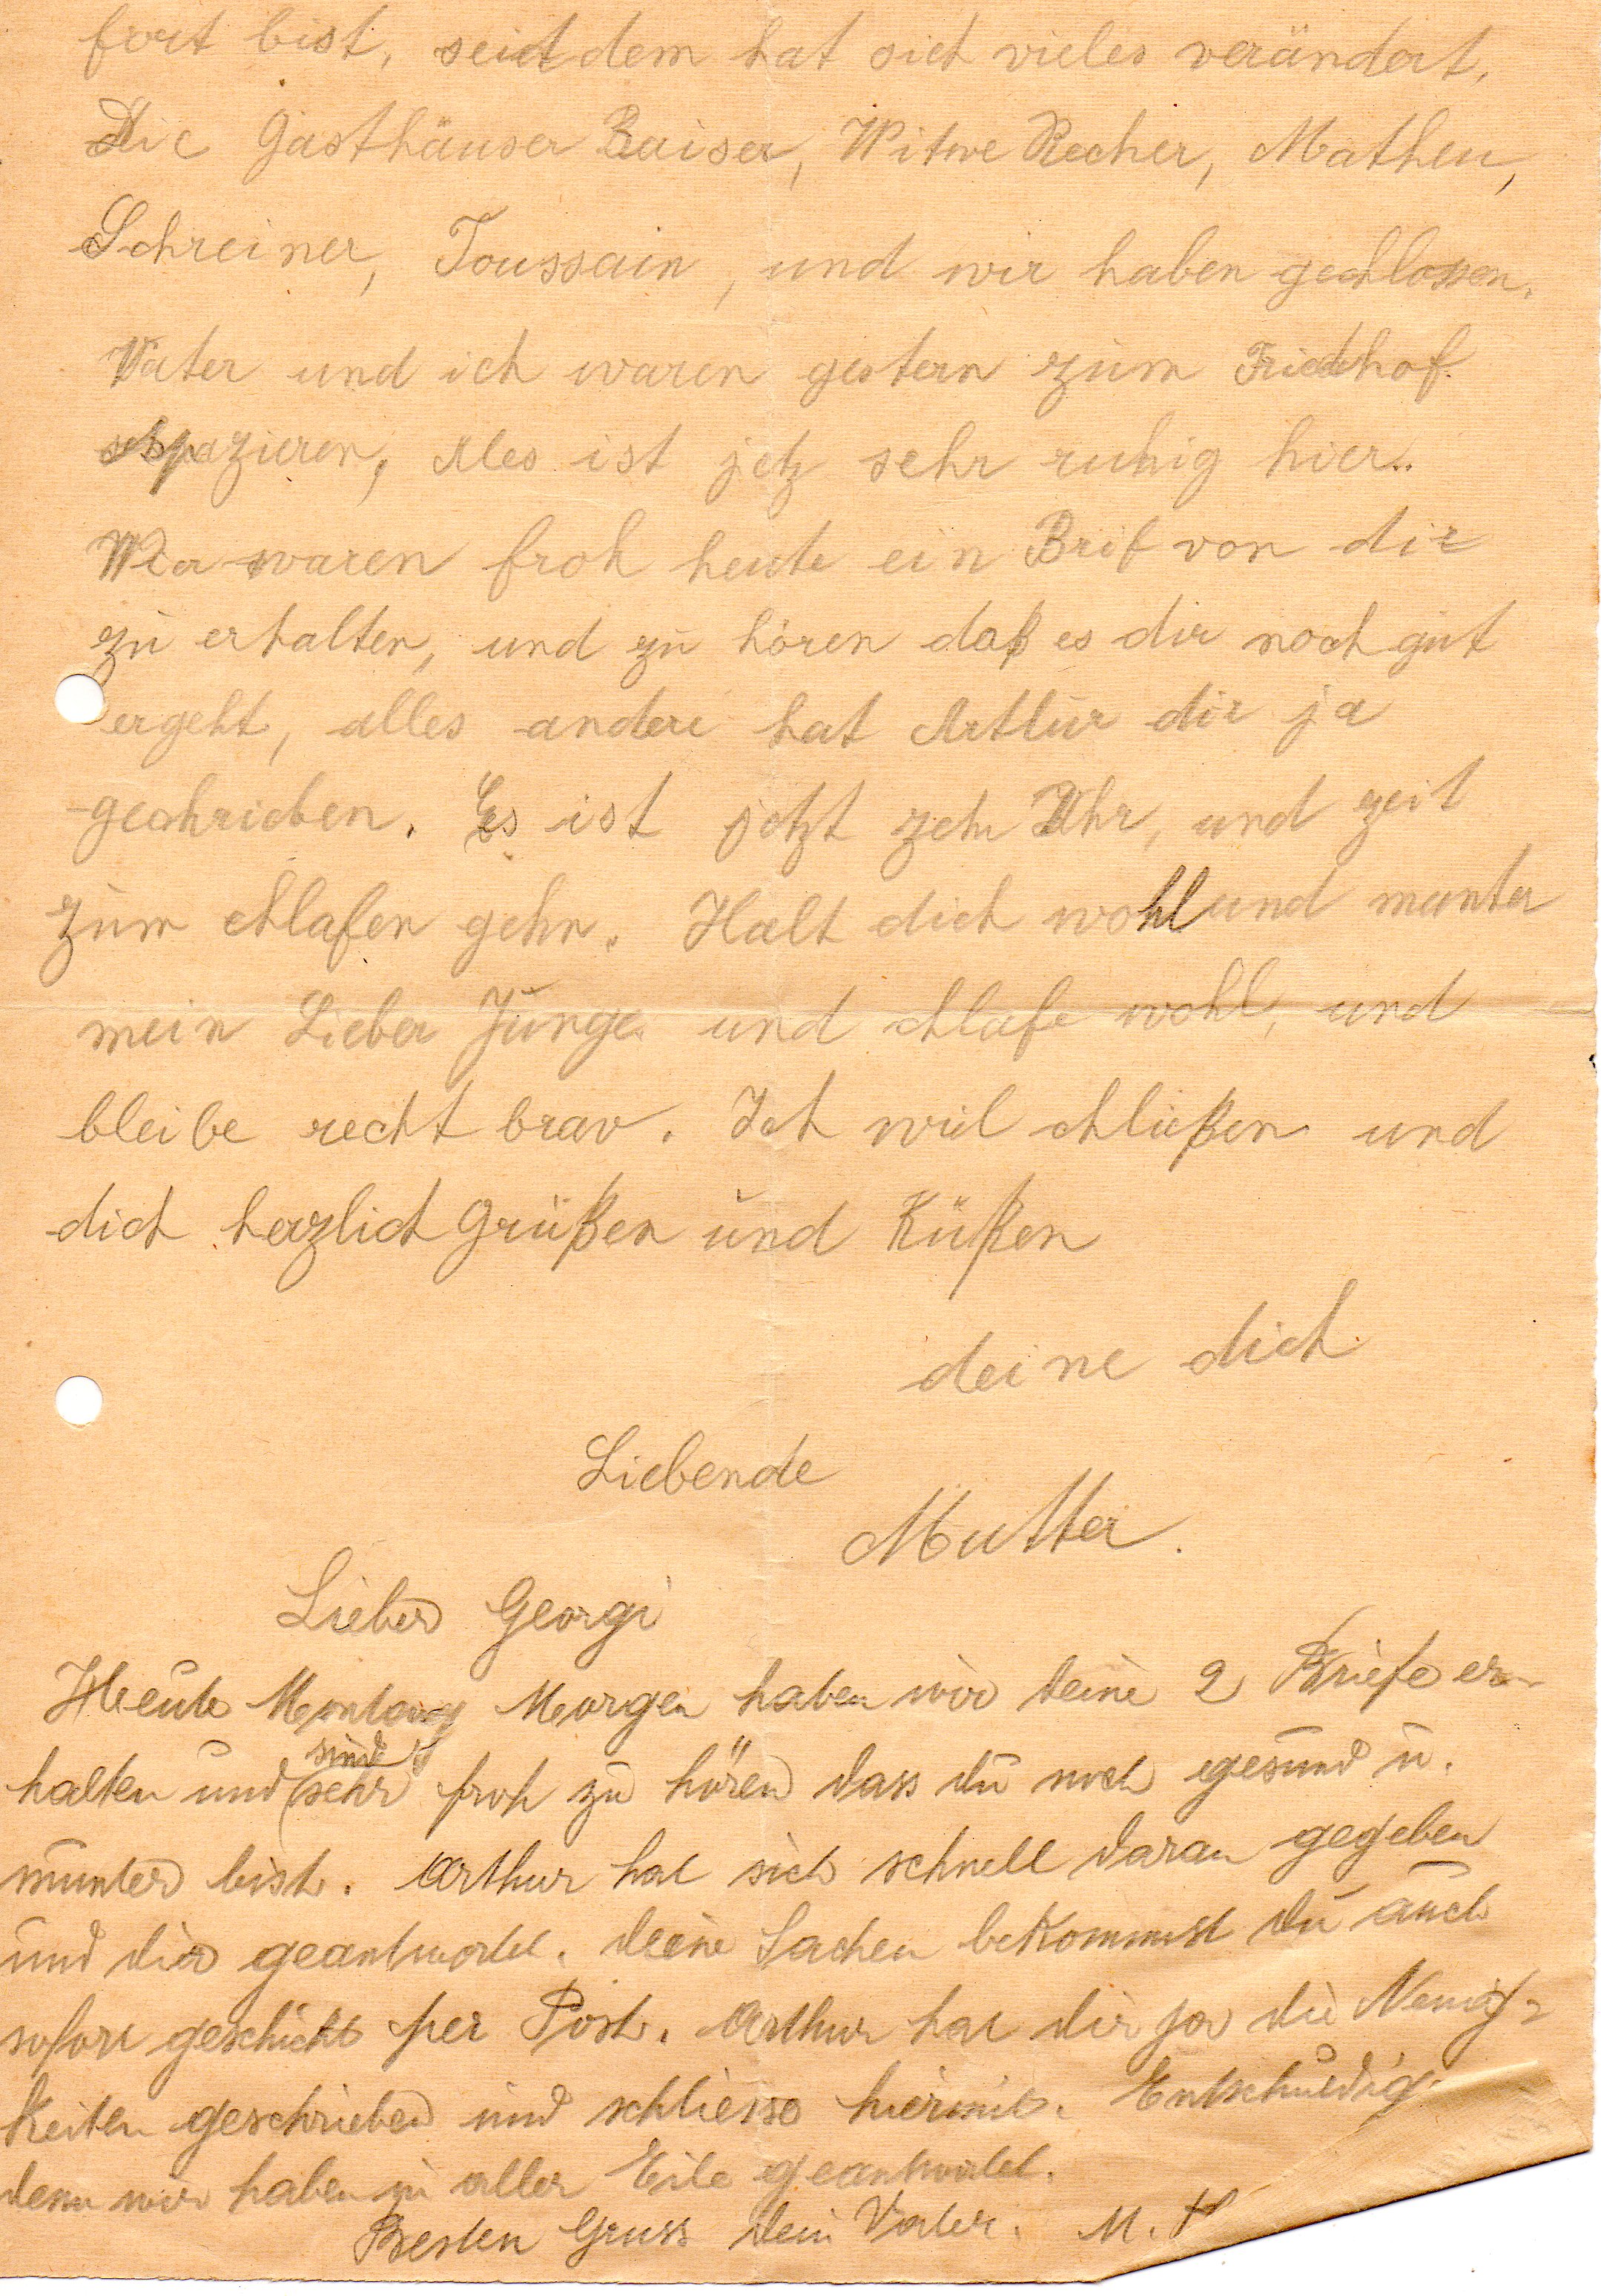 fort bist, seitdem hat sich vieles verändert,
Die Gasthäuser Baiser, Witwe Recher, Matheu,
Schreiner, Toussain, und wir haben gechlossen.
Vater und ich waren gestern zum Friedhof
spazieren, Alles ist jetz sehr ruhig hier..
Wir waren froh heute ein Brif von dir
zu erhalten, und zu hören daß es dir noch gut
ergeht, alles andere hat Arthur dir ja
gechrieben. Es ist jetzt zehn Uhr, und zeit
zum chlafen gehn. Halt dich wohl und munter
mein Lieber Junge und chlafe wohl, und
bleibe recht brav. Ich wil chließen und
dich herzlich Grüßen und Küßen
deine dich
Liebende
Mutter.
Lieber Georgi
Heute Montag Morgen haben wir deine 2 Briefe er-
halten und sind sehr froh zu hören dass du noch gesund u.
munter bist. Arthur hat sich schnell daran gegeben
und dir geantwortet. Deine Sachen bekommst du auch
sofort geschickt per Post. Arthur hat dir ja die Neuig-
keiten geschrieben und schliesse hiermit. Entschuldig
denn wir haben in aller Eile geantwortet.
Besten Gruss dein Vater. M. H